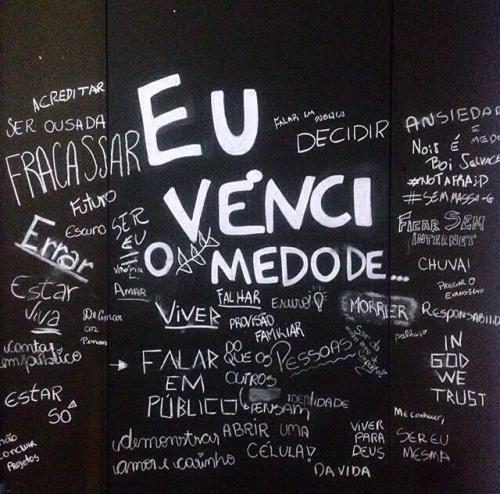 ACREDITAR
SER OUSADA
FRACASSAR
Futuro
Escuro
Errar
Estar
Viva
cantar
em público
ESTAR
SÓ
não
concluir
projetos
EU
VENCI
O MEDO DE...
SER
EU
AMAR
VIVER
FALHAR
Escuro
PROVISÃO
FAMILIAR
MORRER
FALAR
EM
PÚBLICO
DO
QUE OS
OUTROS
PENSAM
PESSOAS
IDENTIDADE
demonstrar
amor e carinho
ABRIR UMA
CÉLULA
DA VIDA
VIVER
PARA
DEUS
FALAR EM PÚBLICO
DECIDIR
ANSIEDAD
E
MEDO
Nois É
Boi Selvage
#NOTAFRAID
#SEMMASSA-G
FICAR SEM
INTERNET
CHUVA!
PREGAR O
EVANGELHO
RESPONSABILID
palhaço
IN
GOD
WE
TRUST
Me conhecer,
SER EU
MESMA